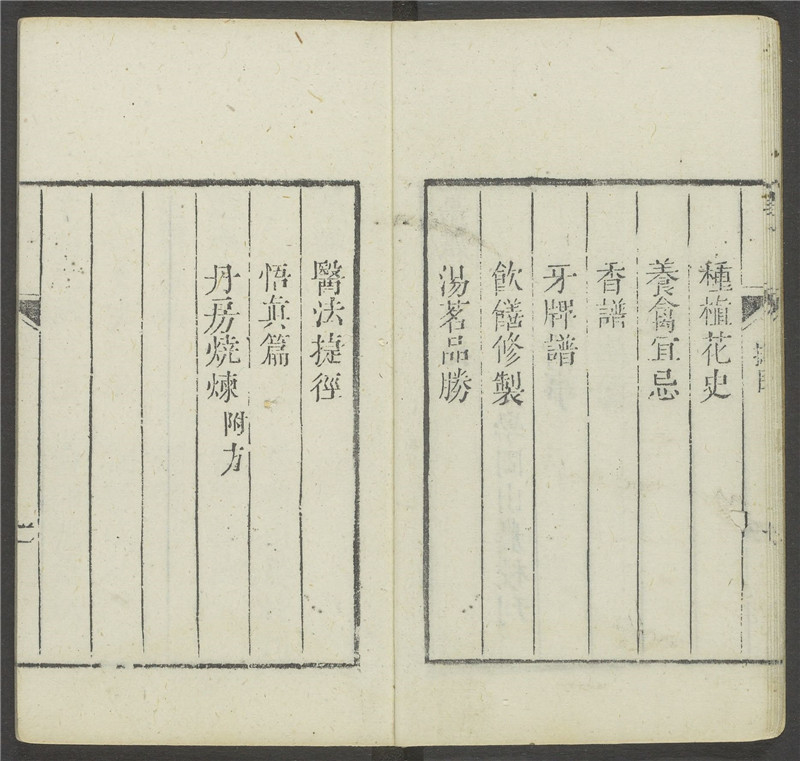 種植花史
養禽宜忌
香譜
牙牌譜
飲饍修製
湯茗品勝
醫法捷徑
悟真篇
丹房燒煉附方